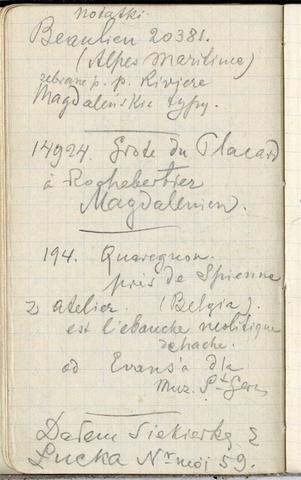 notatki.
Beaulieu 20381.
(Alpes Maritime)
zebrane p. p. Riviere
Magdaleńskie typy.
14924. Grote du Placard
à Rochebertier
Magdalenien.
194. Quaregnon.
près de Spienne
z atelier. (Belgia).
est l'ebauche neolitique
de hache.
od Evans'a dla
Muz. St Germ
Dałem siekierkę z
Łucka Nr mój 59.